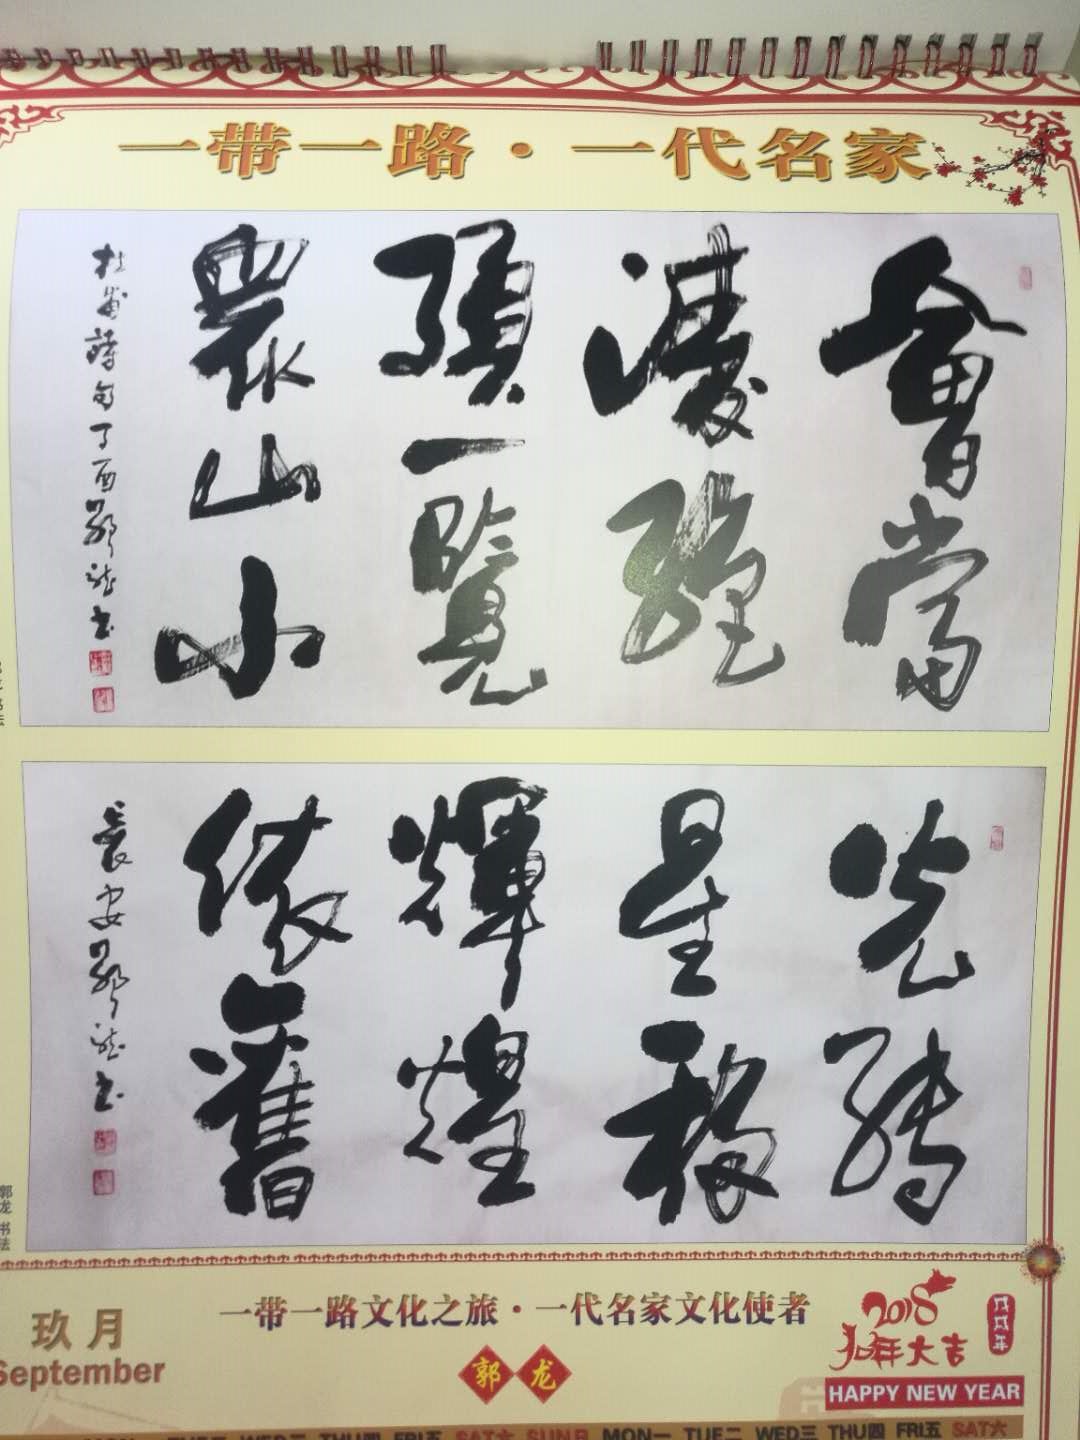 一带一路·一代名家
會當
凌絕
頂一覽
衆山小
杜甫詩句丁酉郭龙书
光轉
星移
輝煌
依舊
長安郭龙书
郭龙 书法
玖月
September
一带一路文化之旅·一代名家文化使者
郭龙
2018
狗年大吉
HAPPY NEW YEAR
SAT六 SUN日 MON一 TUE二 WED三 THU四 FRI五 SAT六